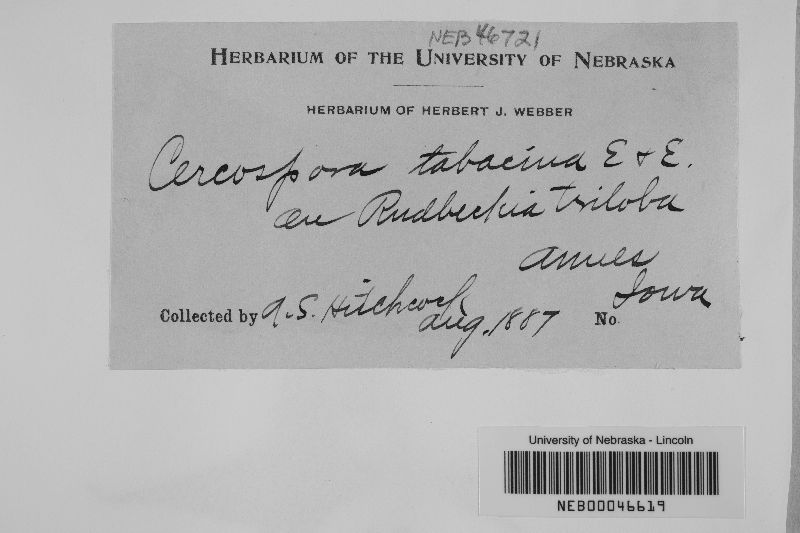 NEB 46721
HERBARIUM OF THE UNIVERSITY OF NEBRASKA
HERBARIUM OF HERBERT J. WEBBER
Cercospora tabacina E & E.
on Rudbeckia triloba
Ames
Iowa
Collected by A.S. Hitchcock
Aug. 1887 No.
University of Nebraska - Lincoln
NEB00046619